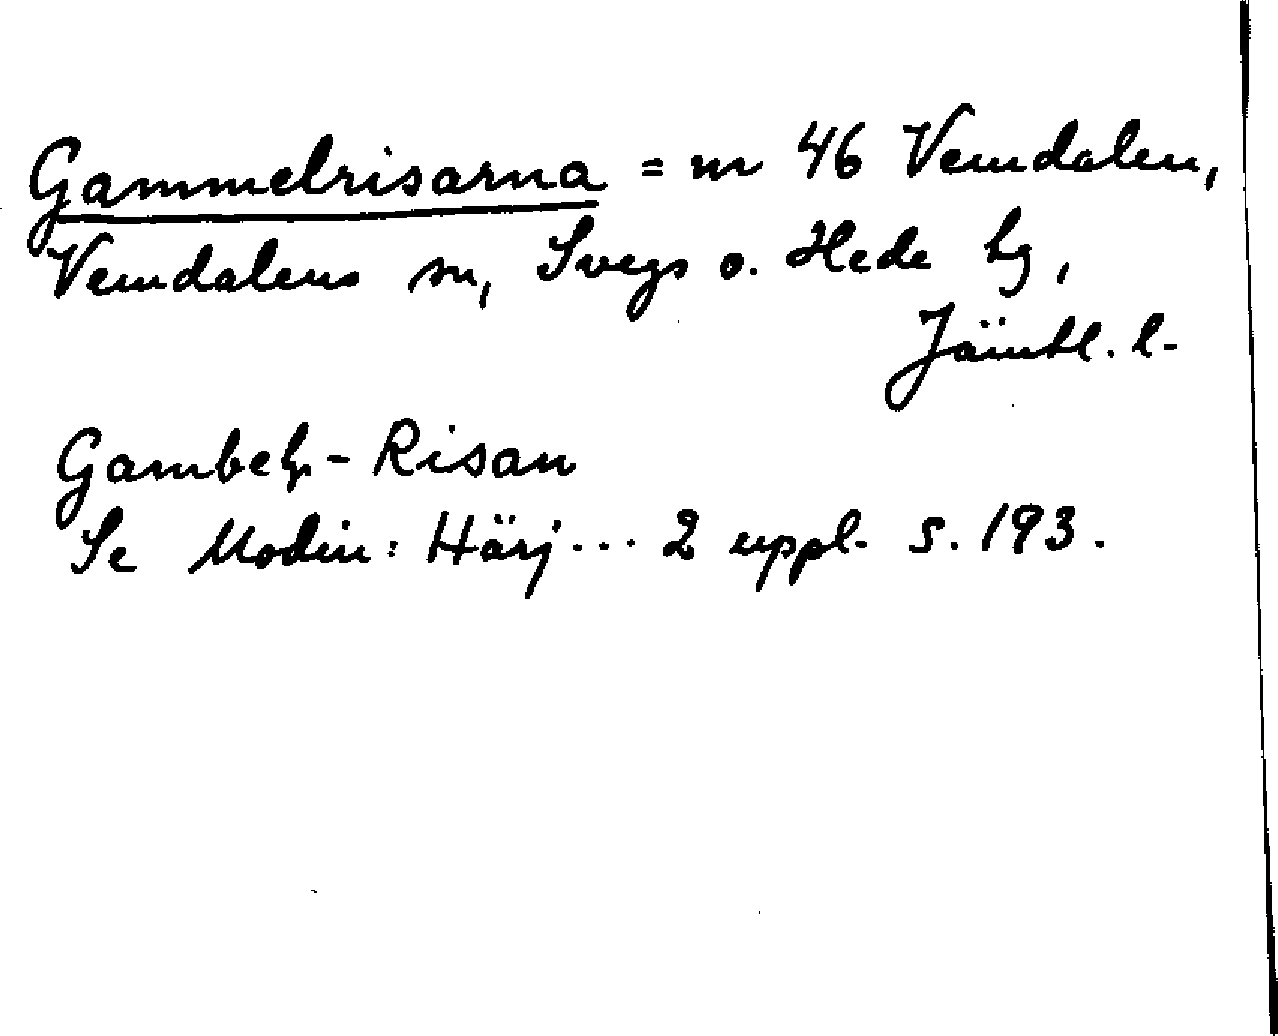 Gammelrisarna = nr 46 Vemdalen,
Vemdalens sn, Svegs o. Hede tg,
Jämtl. l.
Gambeh-Risan
Se Modin: Härj... 2 uppl. s. 193.